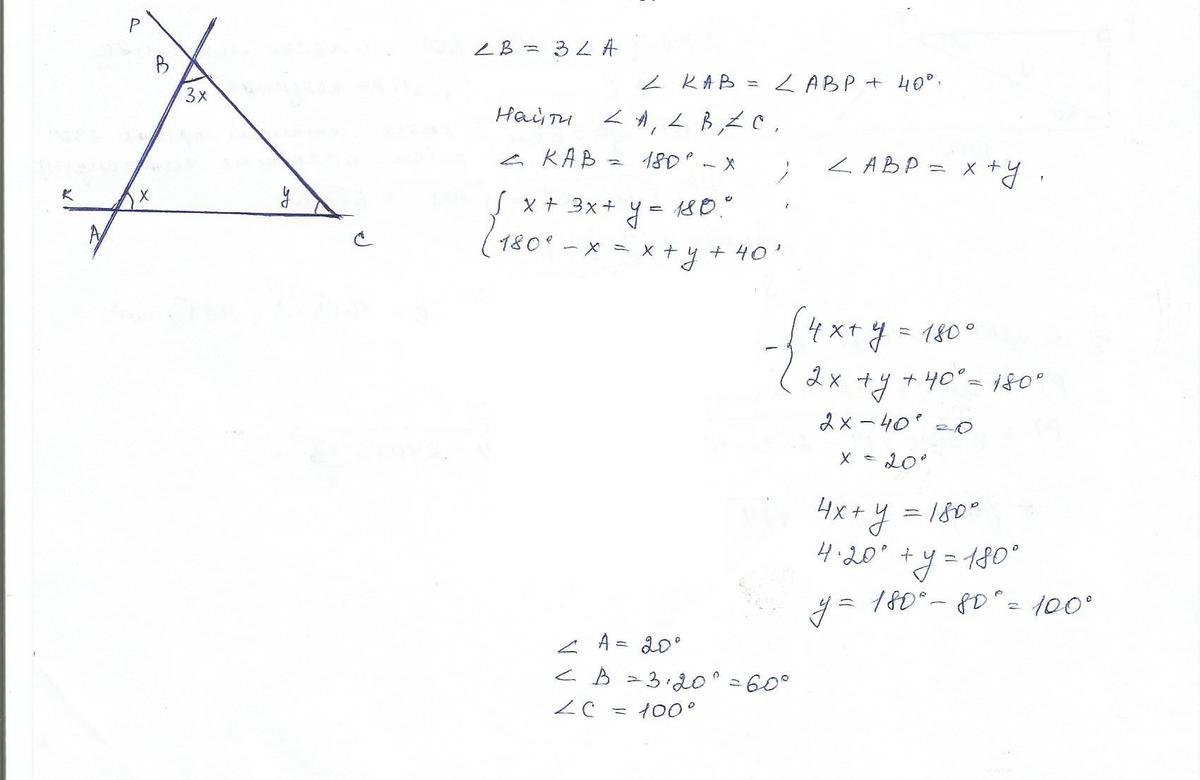 P
B
3x
K
x
y
A
C
∠B = 3∠A
∠KAB = ∠ABP + 40°.
Найти ∠A, ∠B, ∠C.
∠KAB = 180° - x ; ∠ABP = x + y .
x + 3x + y = 180°.
180° - x = x + y + 40°
- { 4x + y = 180°
2x + y + 40° = 180°
2x - 40° = 0
x = 20°
4x + y = 180°
4·20° + y = 180°
y = 180° - 80° = 100°
∠A = 20°
∠B = 3·20° = 60°
∠C = 100°